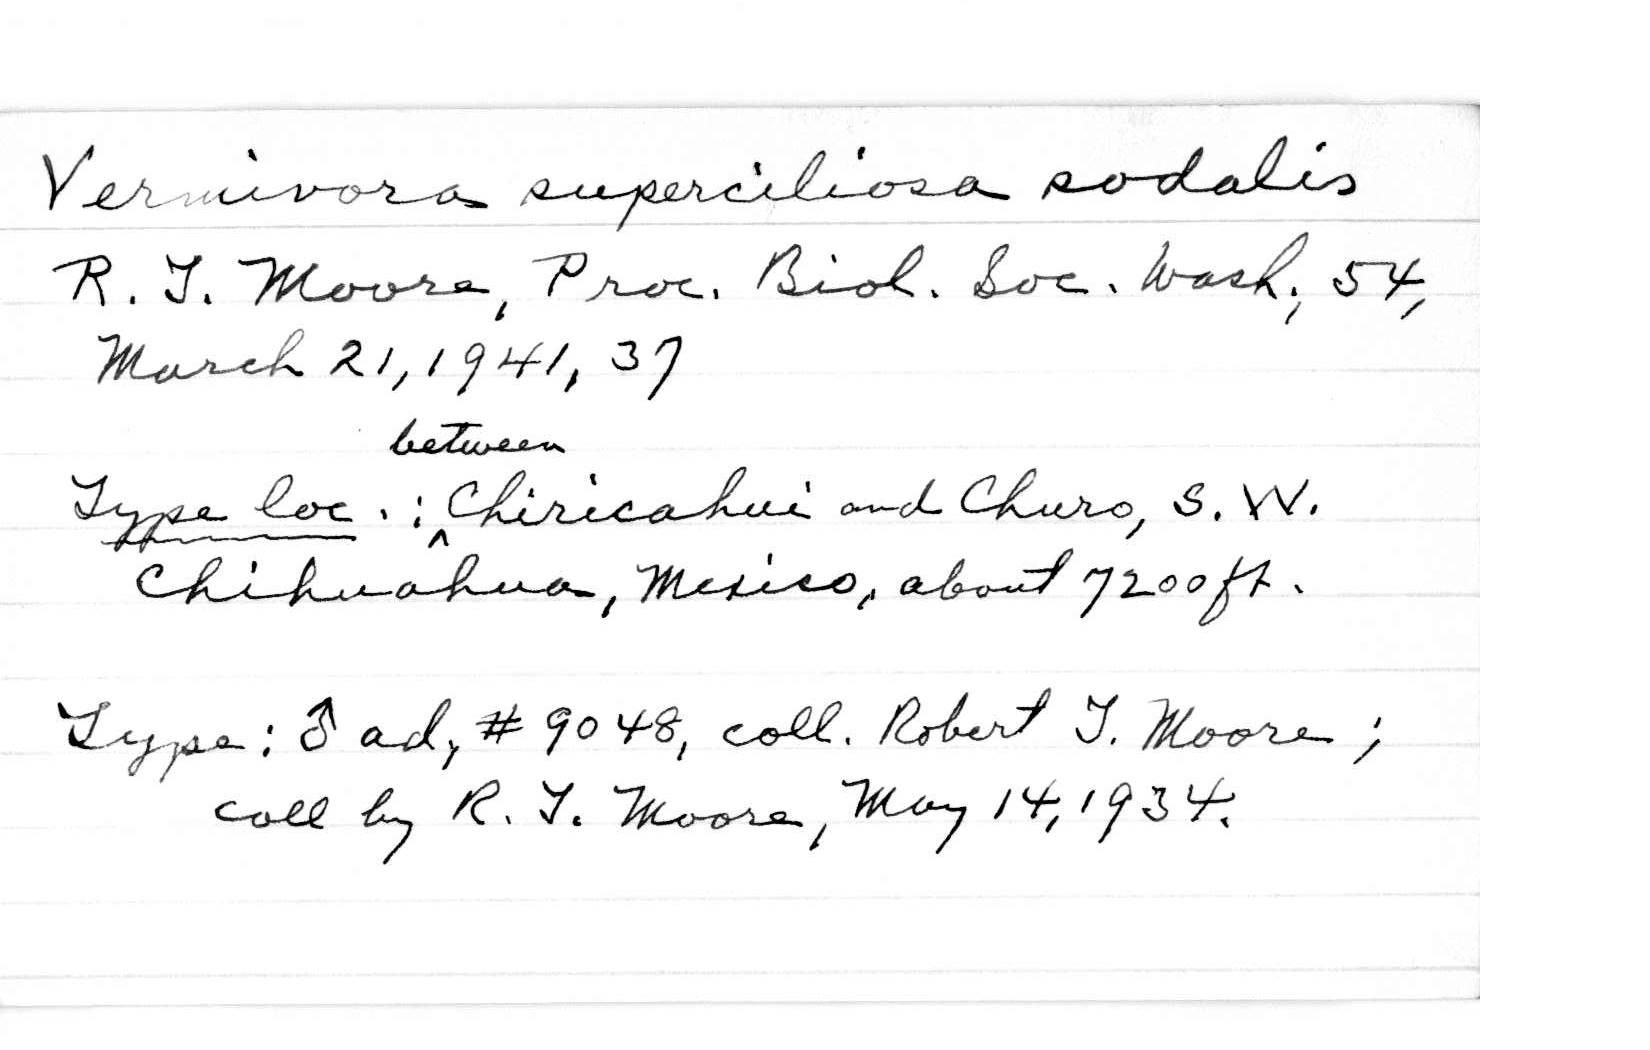 Vermivora superciliosa sodalis
R. T. Moore, Proc. Biol. Soc. Wash., 54,
March 21, 1941, 37
between
Type loc. : ^ Chiricahui and Churo, S. W.
Chihuahua, Mexico, about 7200 ft.
Type : ♂ ad, # 9048, coll. Robert T. Moore ;
coll by R. T. Moore, May 14, 1934.